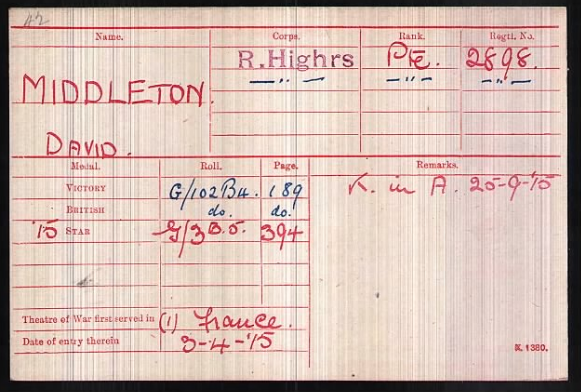 A2
Name. Corps. Rank. Regtl. No.
R.Highrs Pte. 2898.
MIDDLETON. —"— —"— —"—
DAVID.
Medal. Roll. Page. Remarks.
VICTORY G/102B4. 189 K. in A. 25-9-15
BRITISH do. do.
'15 STAR G/3B.5. 394
Theatre of War first served in (1) France.
Date of entry therein 3-4-'15
K. 1380.